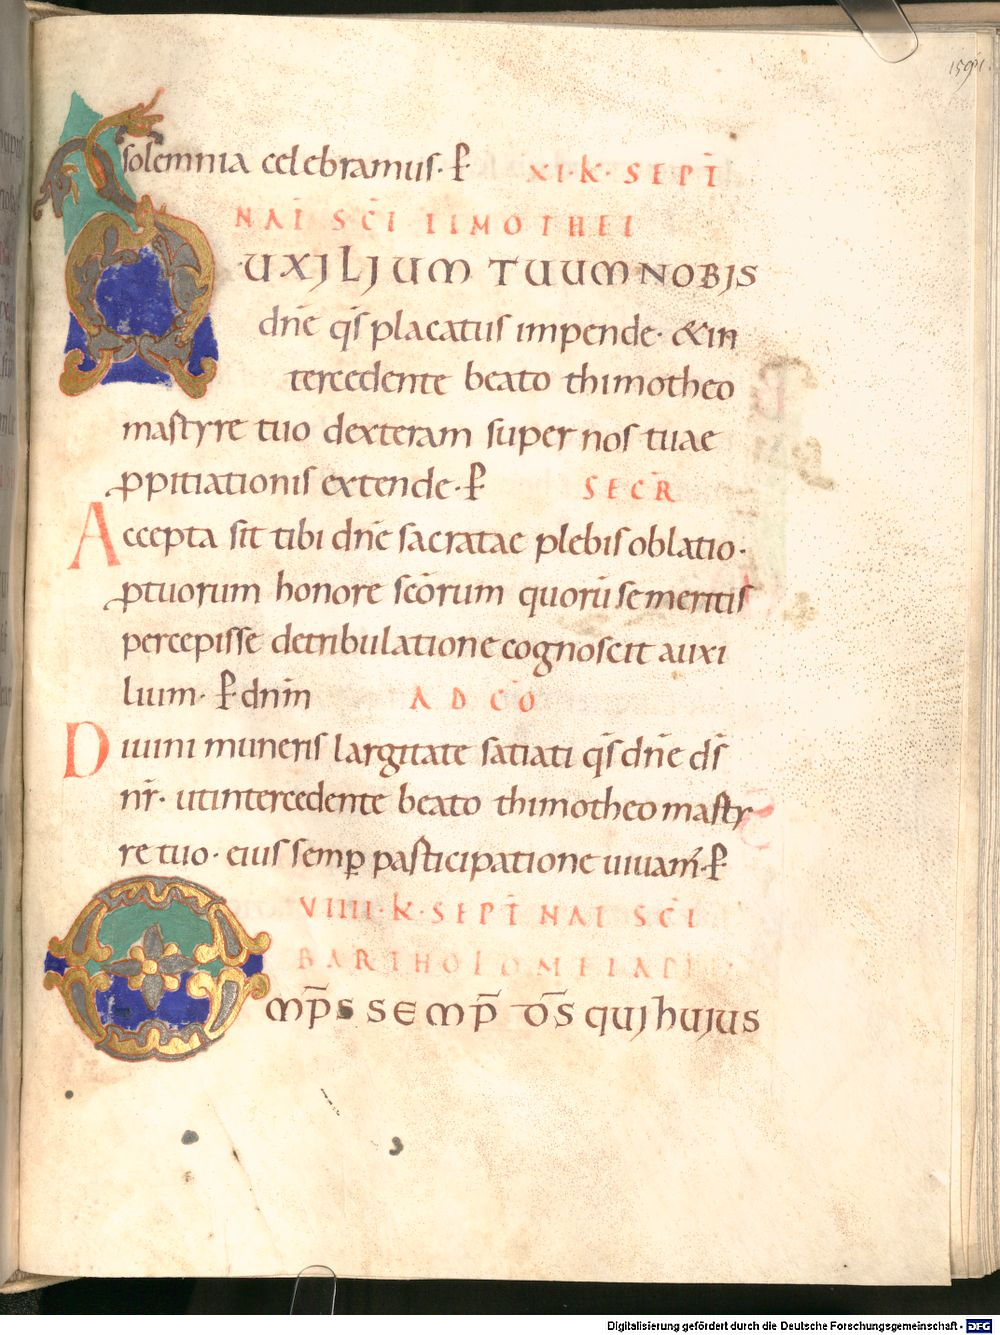 159 1.
solemnia celebramus· P̵ XI·K·SEPT̄
NAT̄ SC̄I TIMOTHEI
AUXILIUM TUUM NOBIS
dn̄e qs̄ placatus impende· &in
tercedente beato thimotheo
martyre tuo dexteram super nos tuae
ꝓpitiationis extende· P̵ SECR̄
Accepta sit tibi dn̄e sacratae plebis oblatio·
ꝓtuorum honore sc̄orum quorū se meritis
percepisse detribulatione cognoscit auxi
lium· P̵ dnm̄ AD CŌ
Diuini muneris largitate satiati qs̄ dn̄e ds̄
nr̄· utintercedente beato thimotheo marty
re tuo· eius semꝑ participatione uiuam̄· P̵
VIIII·K·SEPT̄ NAT SC̄I
BARTHOLOMEI APLI
OMP̄S SEMP̄ DS̄ QUI HUIUS
Digitalisierung gefördert durch die Deutsche Forschungsgemeinschaft - DFG